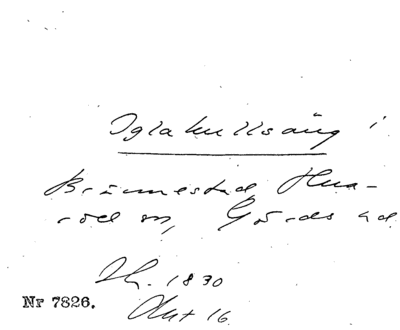 Iglakullsäng i
Brännestad, Hua-
röd sn, Gärds hd
Sk. 1830
Akt 16
Nr 7826.